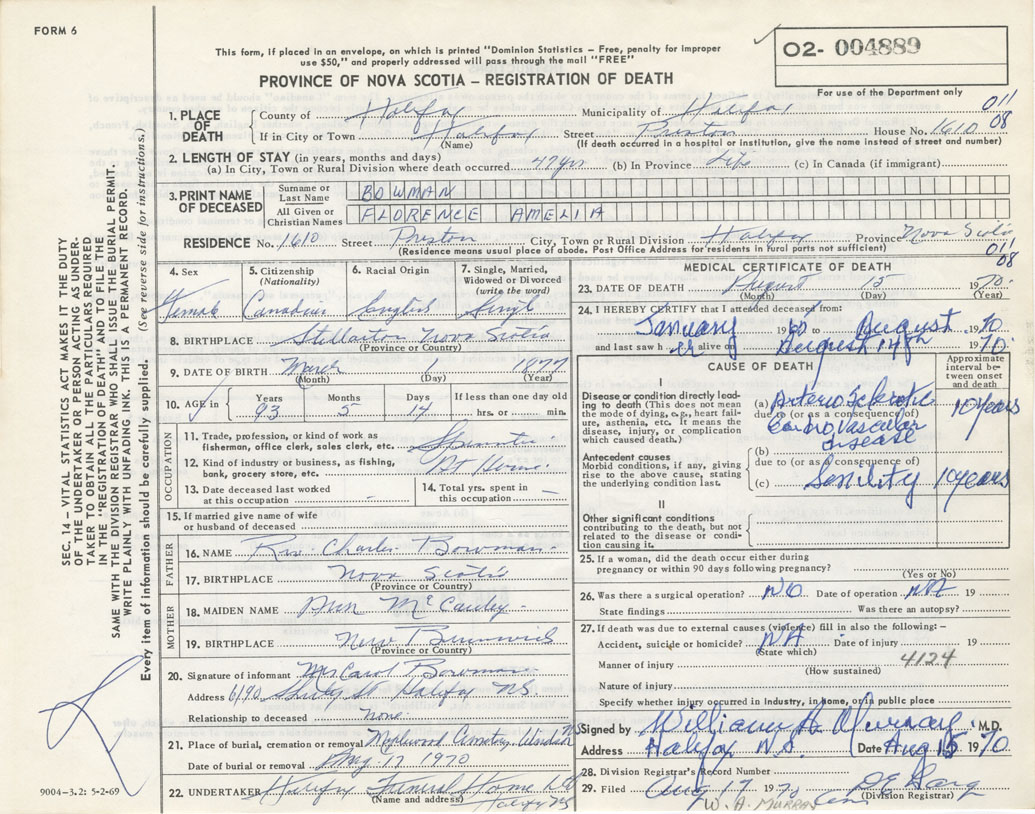 FORM 6
This form, if placed in an envelope, on which is printed "Dominion Statistics – Free, penalty for improper
use $50," and properly addressed will pass through the mail "FREE"
PROVINCE OF NOVA SCOTIA – REGISTRATION OF DEATH
O2- 004889
For use of the Department only
011
08
1. PLACE OF DEATH
County of Halifax Municipality of Halifax
If in City or Town Halifax Street Preston House No. 1610
(Name) (If death occurred in a hospital or institution, give the name instead of street and number)
2. LENGTH OF STAY (in years, months and days)
(a) In City, Town or Rural Division where death occurred 47 yrs (b) In Province Life (c) In Canada (if immigrant)
3. PRINT NAME OF DECEASED
Surname or Last Name BOWMAN
All Given or Christian Names FLORENCE AMELIA
RESIDENCE No. 1610 Street Preston City, Town or Rural Division Halifax Province Nova Scotia
(Residence means usual place of abode. Post Office Address for residents in rural parts not sufficient)
011
08
4. Sex Female
5. Citizenship (Nationality) Canadian
6. Racial Origin English
7. Single, Married, Widowed or Divorced (write the word) Single
8. BIRTHPLACE Stellarton Nova Scotia
(Province or Country)
9. DATE OF BIRTH March 1 1877
(Month) (Day) (Year)
10. AGE in Years 93 Months 5 Days 14 If less than one day old hrs. or min.
OCCUPATION
11. Trade, profession, or kind of work as fisherman, office clerk, sales clerk, etc. Spinster
12. Kind of industry or business, as fishing, bank, grocery store, etc. At Home
13. Date deceased last worked at this occupation -
14. Total yrs. spent in this occupation –
15. If married give name of wife or husband of deceased
FATHER
16. NAME Rev. Charles Bowman
17. BIRTHPLACE Nova Scotia
(Province or Country)
MOTHER
18. MAIDEN NAME Ann McCauley
19. BIRTHPLACE New Brunswick
(Province or Country)
20. Signature of informant Mrs Carol Bowman
Address 6190 Halifax NS
Relationship to deceased None
21. Place of burial, cremation or removal Maplewood Cemetery Windsor NS
Date of burial or removal Aug 17 1970
22. UNDERTAKER Halifax Funeral Home Ltd
(Name and address) Halifax NS
MEDICAL CERTIFICATE OF DEATH
23. DATE OF DEATH August 15 1970
(Month) (Day) (Year)
24. I HEREBY CERTIFY that I attended deceased from:
January 1960 to August 1970
and last saw h er alive on August 14th 1970
CAUSE OF DEATH
Approximate interval between onset and death
I
Disease or condition directly leading to death (This does not mean the mode of dying, e.g., heart failure, asthenia, etc. It means the disease, injury, or complication which caused death.)
(a) Arterio Sclerotic
due to (or as a consequence of)
Cardio Vascular
disease
10 years
Antecedent causes
Morbid conditions, if any, giving rise to the above cause, stating the underlying condition last.
(b)
due to (or as consequence of)
(c) Senility 10 years
II
Other significant conditions contributing to the death, but not related to the disease or condition causing it.
25. If a woman, did the death occur either during pregnancy or within 90 days following pregnancy?
(Yes or No)
26. Was there a surgical operation? NO Date of operation NA 19
State findings Was there an autopsy?
27. If death was due to external causes (violence) fill in also the following:–
Accident, suicide or homicide? NA Date of injury 19
(State which)
Manner of injury 4124
(How sustained)
Nature of injury
Specify whether injury occurred in Industry, in home, or in public place
Signed by William A Murray M.D.
Address Halifax N.S. Date Aug 15 1970
28. Division Registrar's Record Number
29. Filed Aug 17 1970
(Division Registrar)
W. A. MURRAY
SEC. 14 – VITAL STATISTICS ACT MAKES IT THE DUTY
OF THE UNDERTAKER OR PERSON ACTING AS UNDER-
TAKER TO OBTAIN ALL THE PARTICULARS REQUIRED
IN THE "REGISTRATION OF DEATH" AND TO FILE THE
SAME WITH THE DIVISION REGISTRAR WHO SHALL ISSUE THE BURIAL PERMIT.
WRITE PLAINLY WITH UNFADING INK. THIS IS A PERMANENT RECORD.
Every item of information should be carefully supplied. (See reverse side for instructions.)
9004–3.2: 5-2-69